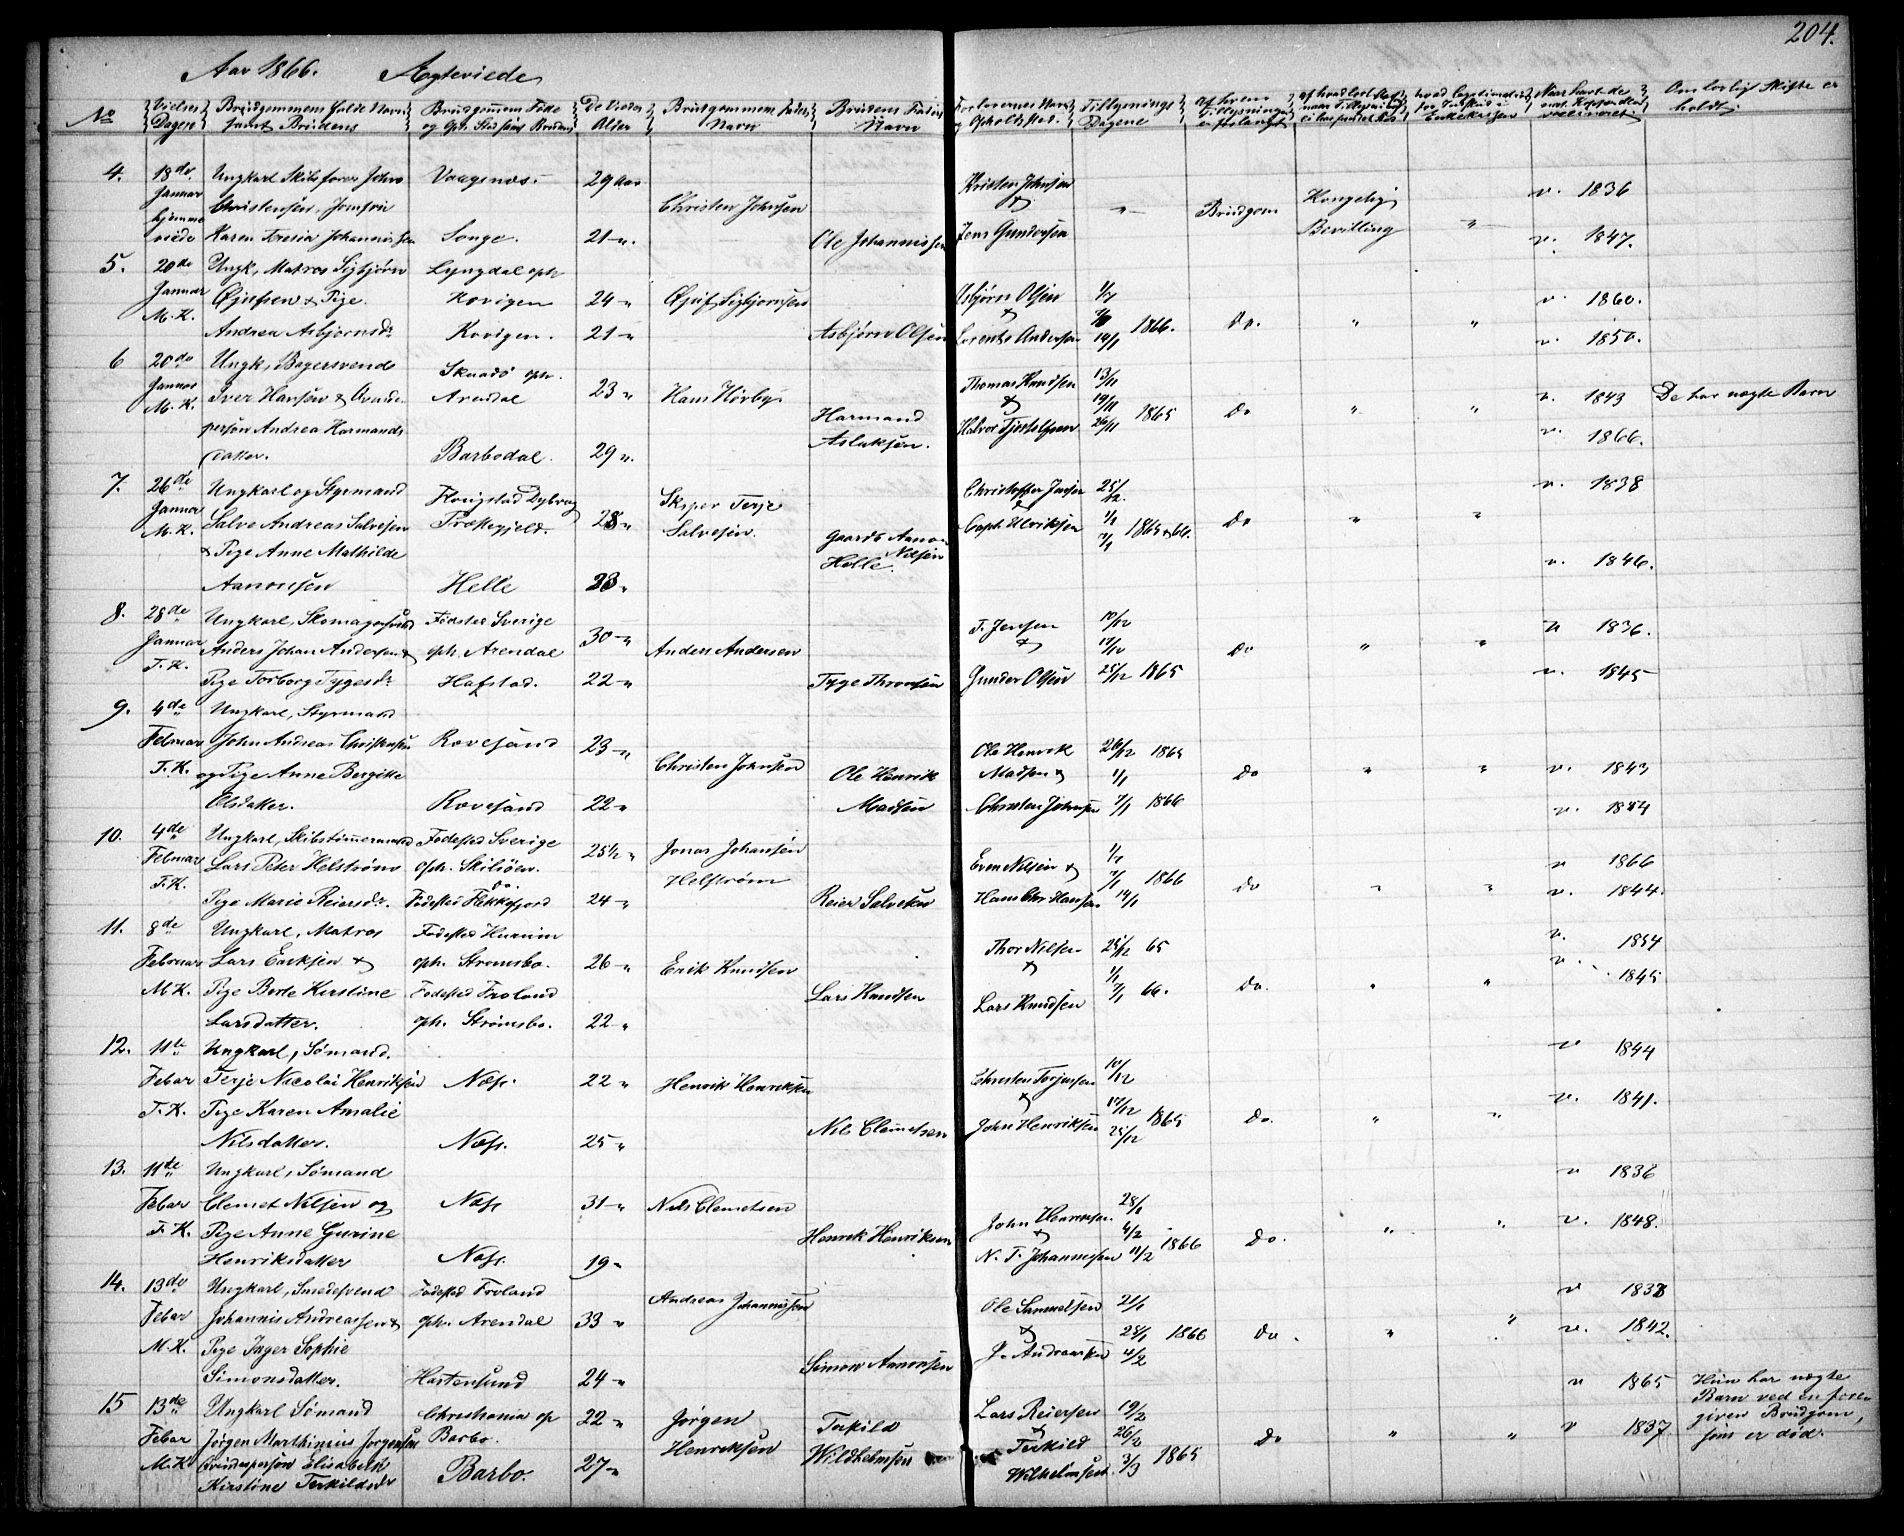 204.
Aar 1866. Ægteviede
No Vielses Dagene Brudgommens fulde Navn samt Brudens Brudgommens Føde og Oph. Sted samt Brudens De Viedes Alder Brudgommens Faders Navn Brudens Faders Navn Forlovernes Navn og Opholdsted. Tillysnings Dagene af hvem Tillysningen er forlangt
4. 18de Januar hjemme viede
Ungkarl Skibsfører John Vaagsnes. 29 Aar Kristen Johnsen v. 1836
Christensen, Jomfru Christen Johnsen & " Brudgom Kongelig
Karen Teresia Johannissen Songe. 21 " Ole Johannissen Jens Gundersen Bevilling " v. 1847.
5. 20de Januar M.K.
Ungk, Matros Sigbjørn Lyngdal oph
Øjufsen & Pige Kovigen 24 " Øjuf Sigbjørnsen Asbjørn Olsen 1/1 v. 1860.
& 7/1 1866. Do. " "
Andrea Asbjornsdr Kovigen. 21 " Asbjørn Olsen Lorents Andersen 14/1 v. 1850.
6 20de Januar M.K.
Ungk, Bagersvend Skuadø oph.
Iver Hansen & Qvinde Arendal 23 " Hans Hörbye Thomas Knudsen 13/11 v. 1843 De har nøgte Barn
& 19/11 1865 Do " "
person Andrea Harmands Harmand Halvor Tjostolfsen 26/11 v. 1866.
datter. Barbodal. 29 " Aslaksen.
7. 26de Januar M.K.
Ungkarl og Styrmand Flovigstad Dybvag Skyper Terje Christopher Jensen 25/12 v. 1838
Salve Andreas Salvesen Trækgjeld. 28 " Salvesen. & 1/1 1865 & 66. Do " "
& Pige Anne Mathilde Gaardb Aanon Nilsen Capt. Ulriksen 7/1
Aanonsen Helle 23 " Helle. v. 1846.
8. 28de Januar T.K.
Ungkarl, Skomagersvend Fødsted Sverige T. Jensen 10/12 v 1836.
Anders Johan Andersen & oph. Arendal 30 " Anders Andersen & 17/12 Do " "
Pige Torborg Tygesdr Hafstad. 22 " Tyge Thronsen Gunder Olsen 25/12 1865 v. 1845
9. 4de Februar T.K.
Ungkarl, Styrmand
John Andreas Christensen Rovesand 23 " Christen Johnsen Ole Henrik 26/12 1865
og Pige Anne Bergitte Ole Henrik Madsen & 1/1 Do " " v. 1843
Olsdatter. Rovesand 22 " Madsen Christen Johnsen 7/1 1866 v. 1844
10. 4de Februar T.K.
Ungkarl, Skibstømmermand Fødested Sverige
Lars Peter Helstrøm oph. Skilsøen. 25½ " Jonas Johansen Even Nilsen & 1/1 v 1866
Do. Helstrøm 7/1 1866 Do " "
Pige Marie Reiersdr. Fødested Flekkefjord 24 " Reier Salvesen Hans Chr. Hansen 14/1 v. 1844.
11. 8de Februar M.K.
Ungkarl, Matros Fødested Hurum
Lars Eriksen & oph. Stromsbo. 26 " Erik Knudsen Thor Nilsen 25/12 65 v. 1854
Pige Berte Kirstine Fødested Froland & 1/1 v. 1845
Larsdatter. oph. Strømsbo. 22 " Lars Knudsen Lars Knudsen 7/1 66. Do. " "
12. 11te Febar T.K.
Ungkarl, Sømand. v 1844
Terje Nicolai Henriksen Næs. 22 " Henrik Henriksen Christen Terjesen 10/12
Pige Karen Amalie & 17/12 1865 Do. " " v. 1841.
Nilsdatter. Næs. 25 " Nils Clemetsen John Henriksen 25/12
13. 11te Febar T.K.
Ungkarl, Sømand v 1836
Clemet Nilsen og Næs 31 " Nils Clemetsen John Henriksen 28/1
Pige Anne Gurine & 4/2 1866 Do. " " v. 1848.
Henriksdatter Næs. 19 " Henrik Henriksen N. T. Johannesen 11/2
14. 13de Febar M.K.
Ungkarl, Smedesvend Fødested Froland Andreas Johannissen Ole Samuelsen 21/1 v 1838
Johannis Andreassen & oph. Arendal 33 " & 28/1 1866 Do. " " v. 1842.
Pige Inger Sophie J. Andreasen 4/2
Simonsdatter. Hastensund 24 " Simon Aanonsen
15 13de Febar M.K.
Ungkarl Sømand Christiania op 22 " Jørgen Terkild Lars Reiersen 19/2 v 1865 Hun har nøgte
Jörgen Marthinius Jørgensen Barbo. Henriksen Wildhelmsen & 26/2 Barn ved en foren
Qvindesperson Elisabeth Barbo. 27 " Terkild 3/3 1865 Do " " v 1837 given Brudgom,
Kirstine Terkildsdr Wilhelmsen. som er død.